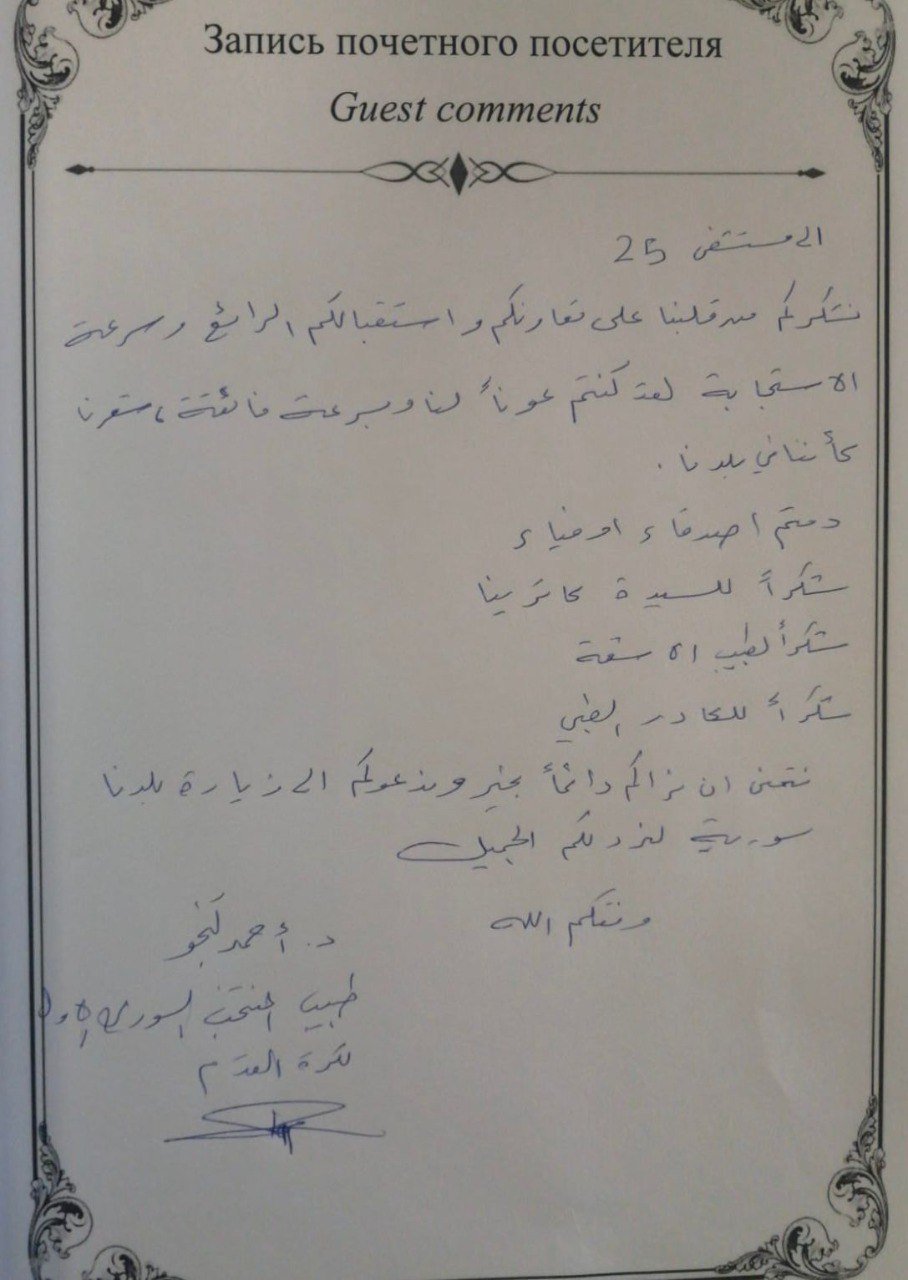 Запись почетного посетителя
Guest comments
الى مستشفى 25
نشكركم من قلبنا على تعاونكم و استقبالكم الرائع وسرعة
الاستجابة لقد كنتم عوناً لنا وبسرعة فائقة، شعرنا
كأننا في بلدنا.
دمتم اصدقاء اوفياء
شكراً للسيدة كاترينا
شكراً لطبيب الاشعة
شكراً للكادر الطبي
نتمنى ان نراكم دائماً بخير وندعوكم الى زيارة بلدنا
سورية لنرد لكم الجميل
وفقكم الله
د. أحمد كنجو
طبيب المنتخب السوري الاول
لكرة القدم